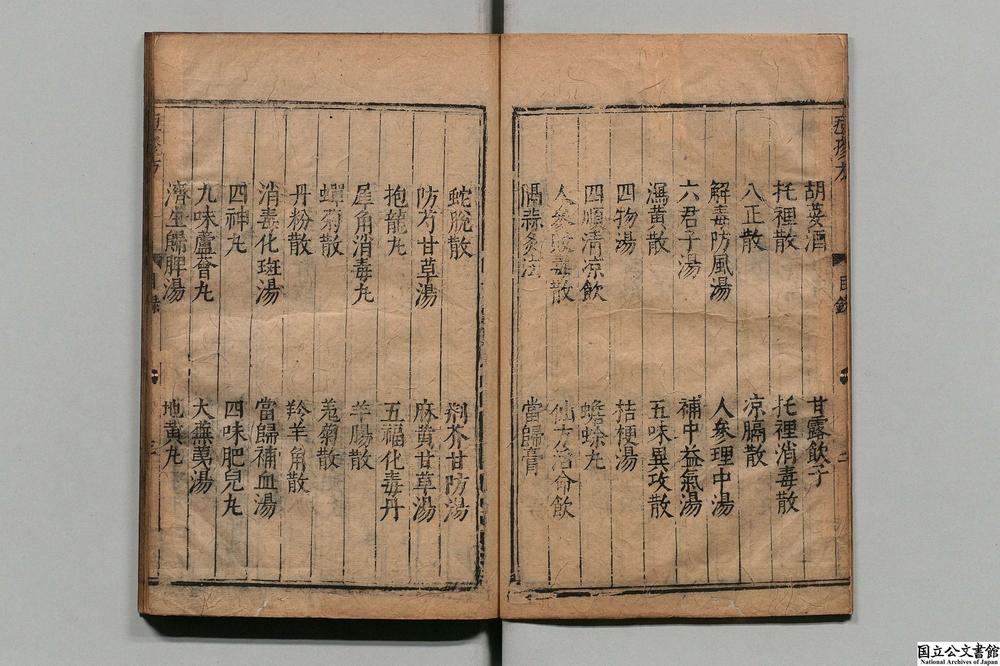 胡荽酒 甘露飲子
托裡散 托裡消毒散
八正散 凉膈散
解毒防風湯 人參理中湯
六君子湯 補中益氣湯
瀉黃散 五味異攻散
四物湯 桔梗湯
四順清凉飲 蟾蜍丸
人參敗毒散 仙方活命飲
隔蒜灸法 當歸膏
目錄
二
蛇脫散 荆芥甘防湯
防芍甘草湯 麻黃甘草湯
抱龍丸 五福化毒丹
犀角消毒丸 羊腸散
蟬菊散 羗菊散
丹粉散 羚羊角散
消毒化斑湯 當歸補血湯
四神丸 四味肥兒丸
九味蘆薈丸 大蕪荑湯
濟生歸脾湯 地黃丸
国立公文書館
National Archives of Japan